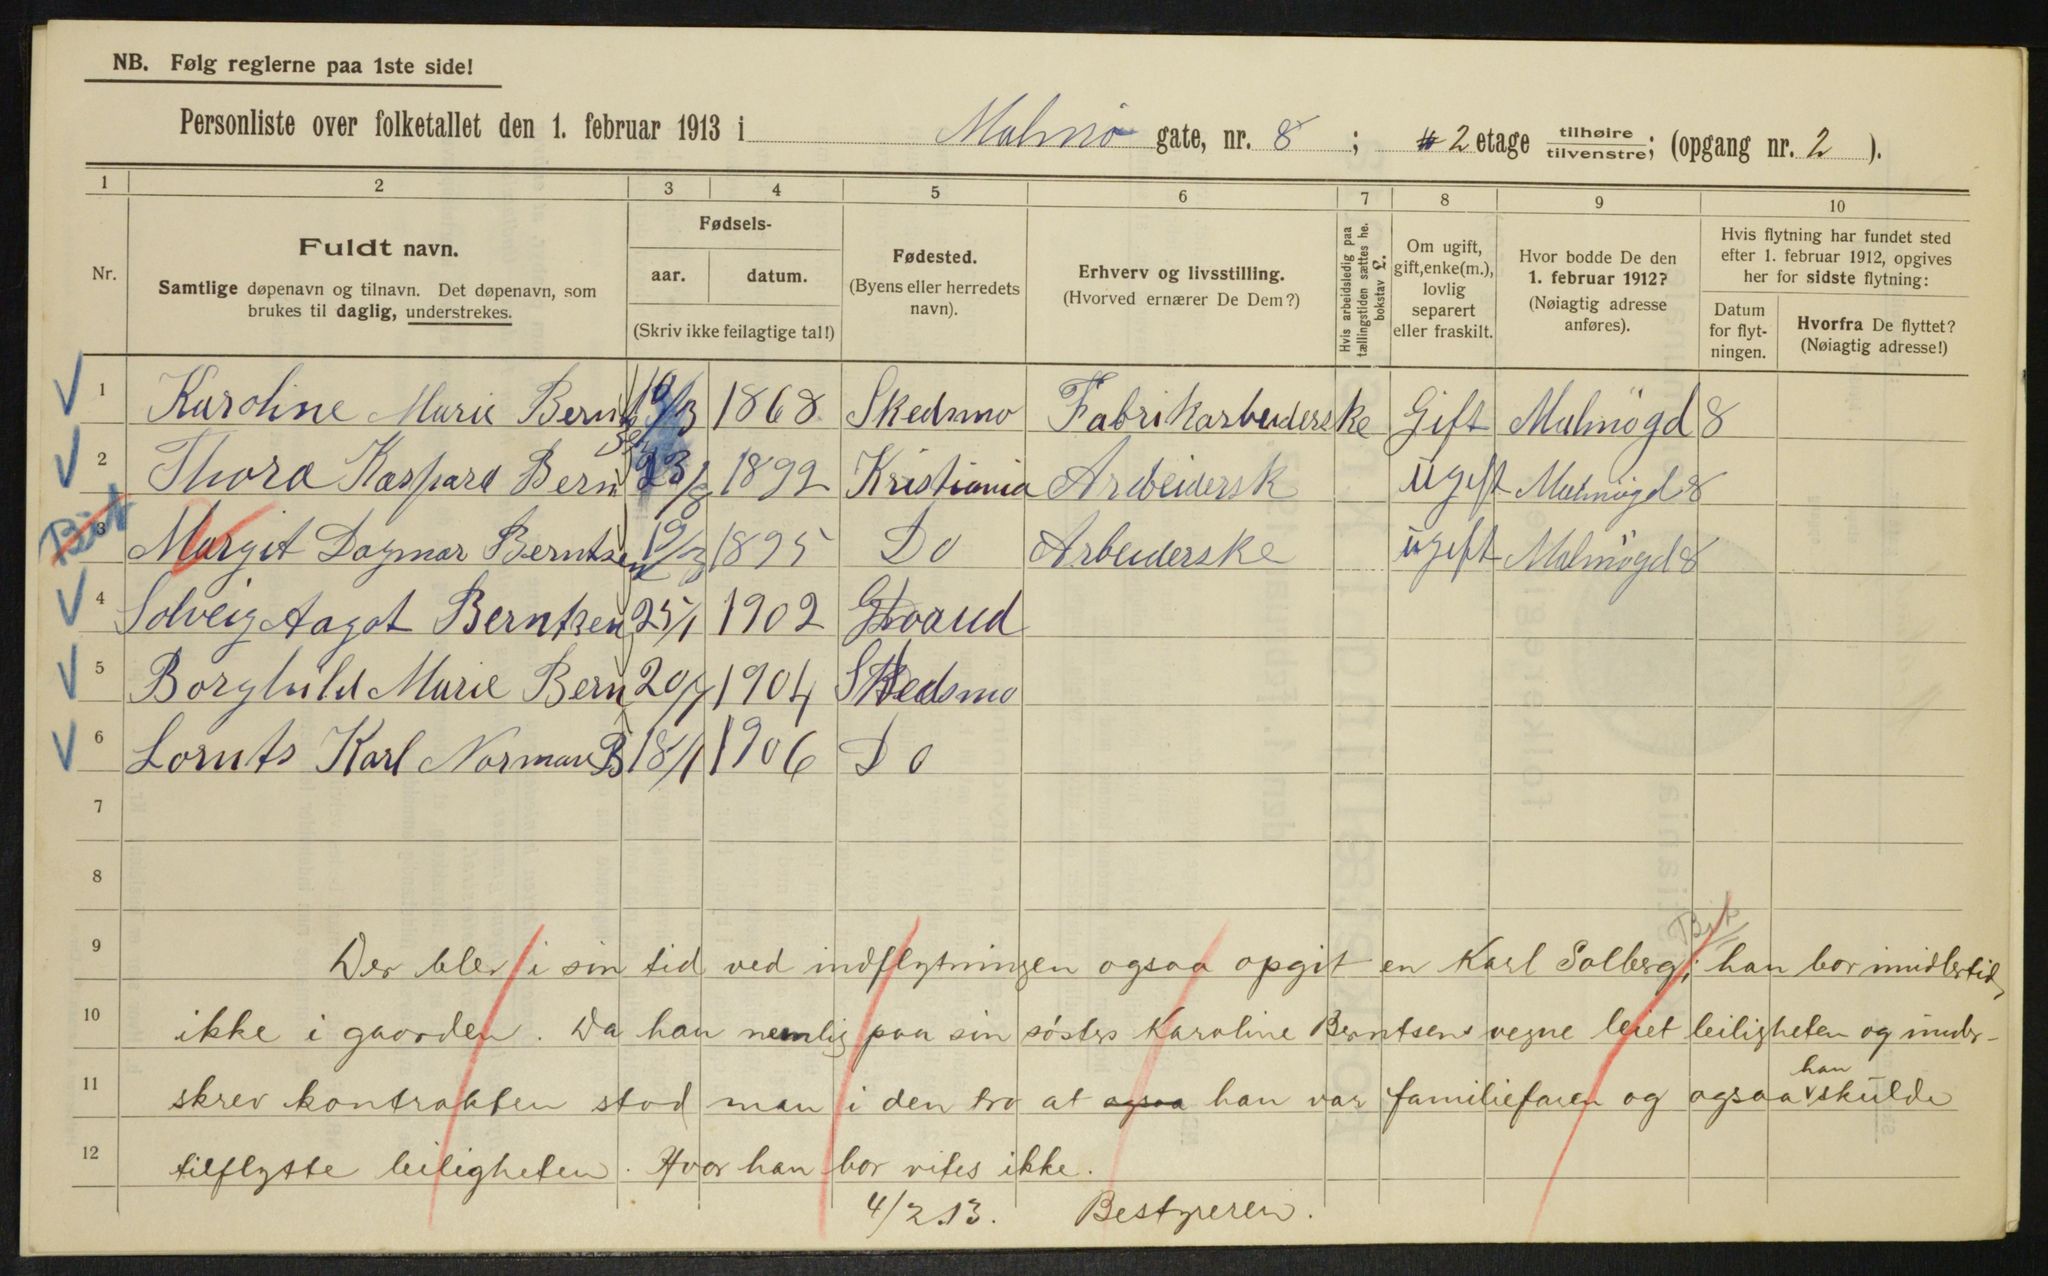 NB. Følg reglerne paa 1ste side!
Personliste over folketallet den 1. februar 1913 i Malmø gate, nr. 8 ; 2 etage tilhøire tilvenstre; (opgang nr. 2 ).
1 2 3 4 5 6 7 8 9 10
Nr.
Fuldt navn.
Samtlige døpenavn og tilnavn. Det døpenavn, som
brukes til daglig, understrekes.
Fødsels-
aar. datum.
(Skriv ikke feilagtige tal!)
Fødested.
(Byens eller herredets
navn).
Erhverv og livsstilling.
(Hvorved ernærer De Dem?)
Hvis arbeidsledig paa
tællingstiden sættes he.
bokstav L.
Om ugift,
gift, enke(m.),
lovlig
separert
eller fraskilt.
Hvor bodde De den
1. februar 1912?
(Nøiagtig adresse
anføres).
Hvis flytning har fundet sted
efter 1. februar 1912, opgives
her for sidste flytning:
Datum
for flyt-
ningen.
Hvorfra De flyttet?
(Nøiagtig adresse!)
1 Karoline Marie Bernt 1868 Skedsmo Fabrikarbeiderske Gift Malmögd 8
2 Thora Kaspara Bern 1892 Kristiania Arbeidersk ugift Malmögd 8
3 Margit Dagmar Berntsen 1895 Do Arbeiderske ugift Malmögd 8
4 Solveig Aagot Berntsen 25/1 1902
5 Borghild Marie Bern 20/7 1904 Skedsmo
6 Lornts Karl Norman B 18/1 1906 Do
7
8
9 Der blev i sin tid ved indflytningen ogsaa opgit en Karl Solberg; han bor imidlertid
10 ikke i gaarden. Da han nemlig paa sin søsters Karoline Berntsens vegne leiet leiligheten og under-
11 skrev kontrakten stod man i den tro at ogsaa han var familiefaren og ogsaa han skulde
12 tilflytte leiligheten. Hvor han bor vites ikke.
4/2.13. Bestyreren.